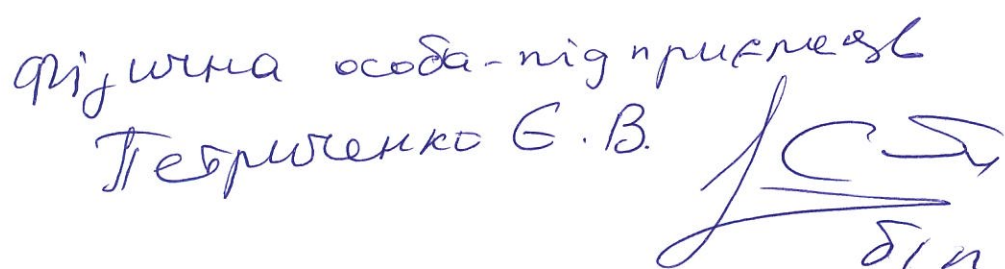 Фізична особа-підприємець
Петриченко Є. В.
б/п